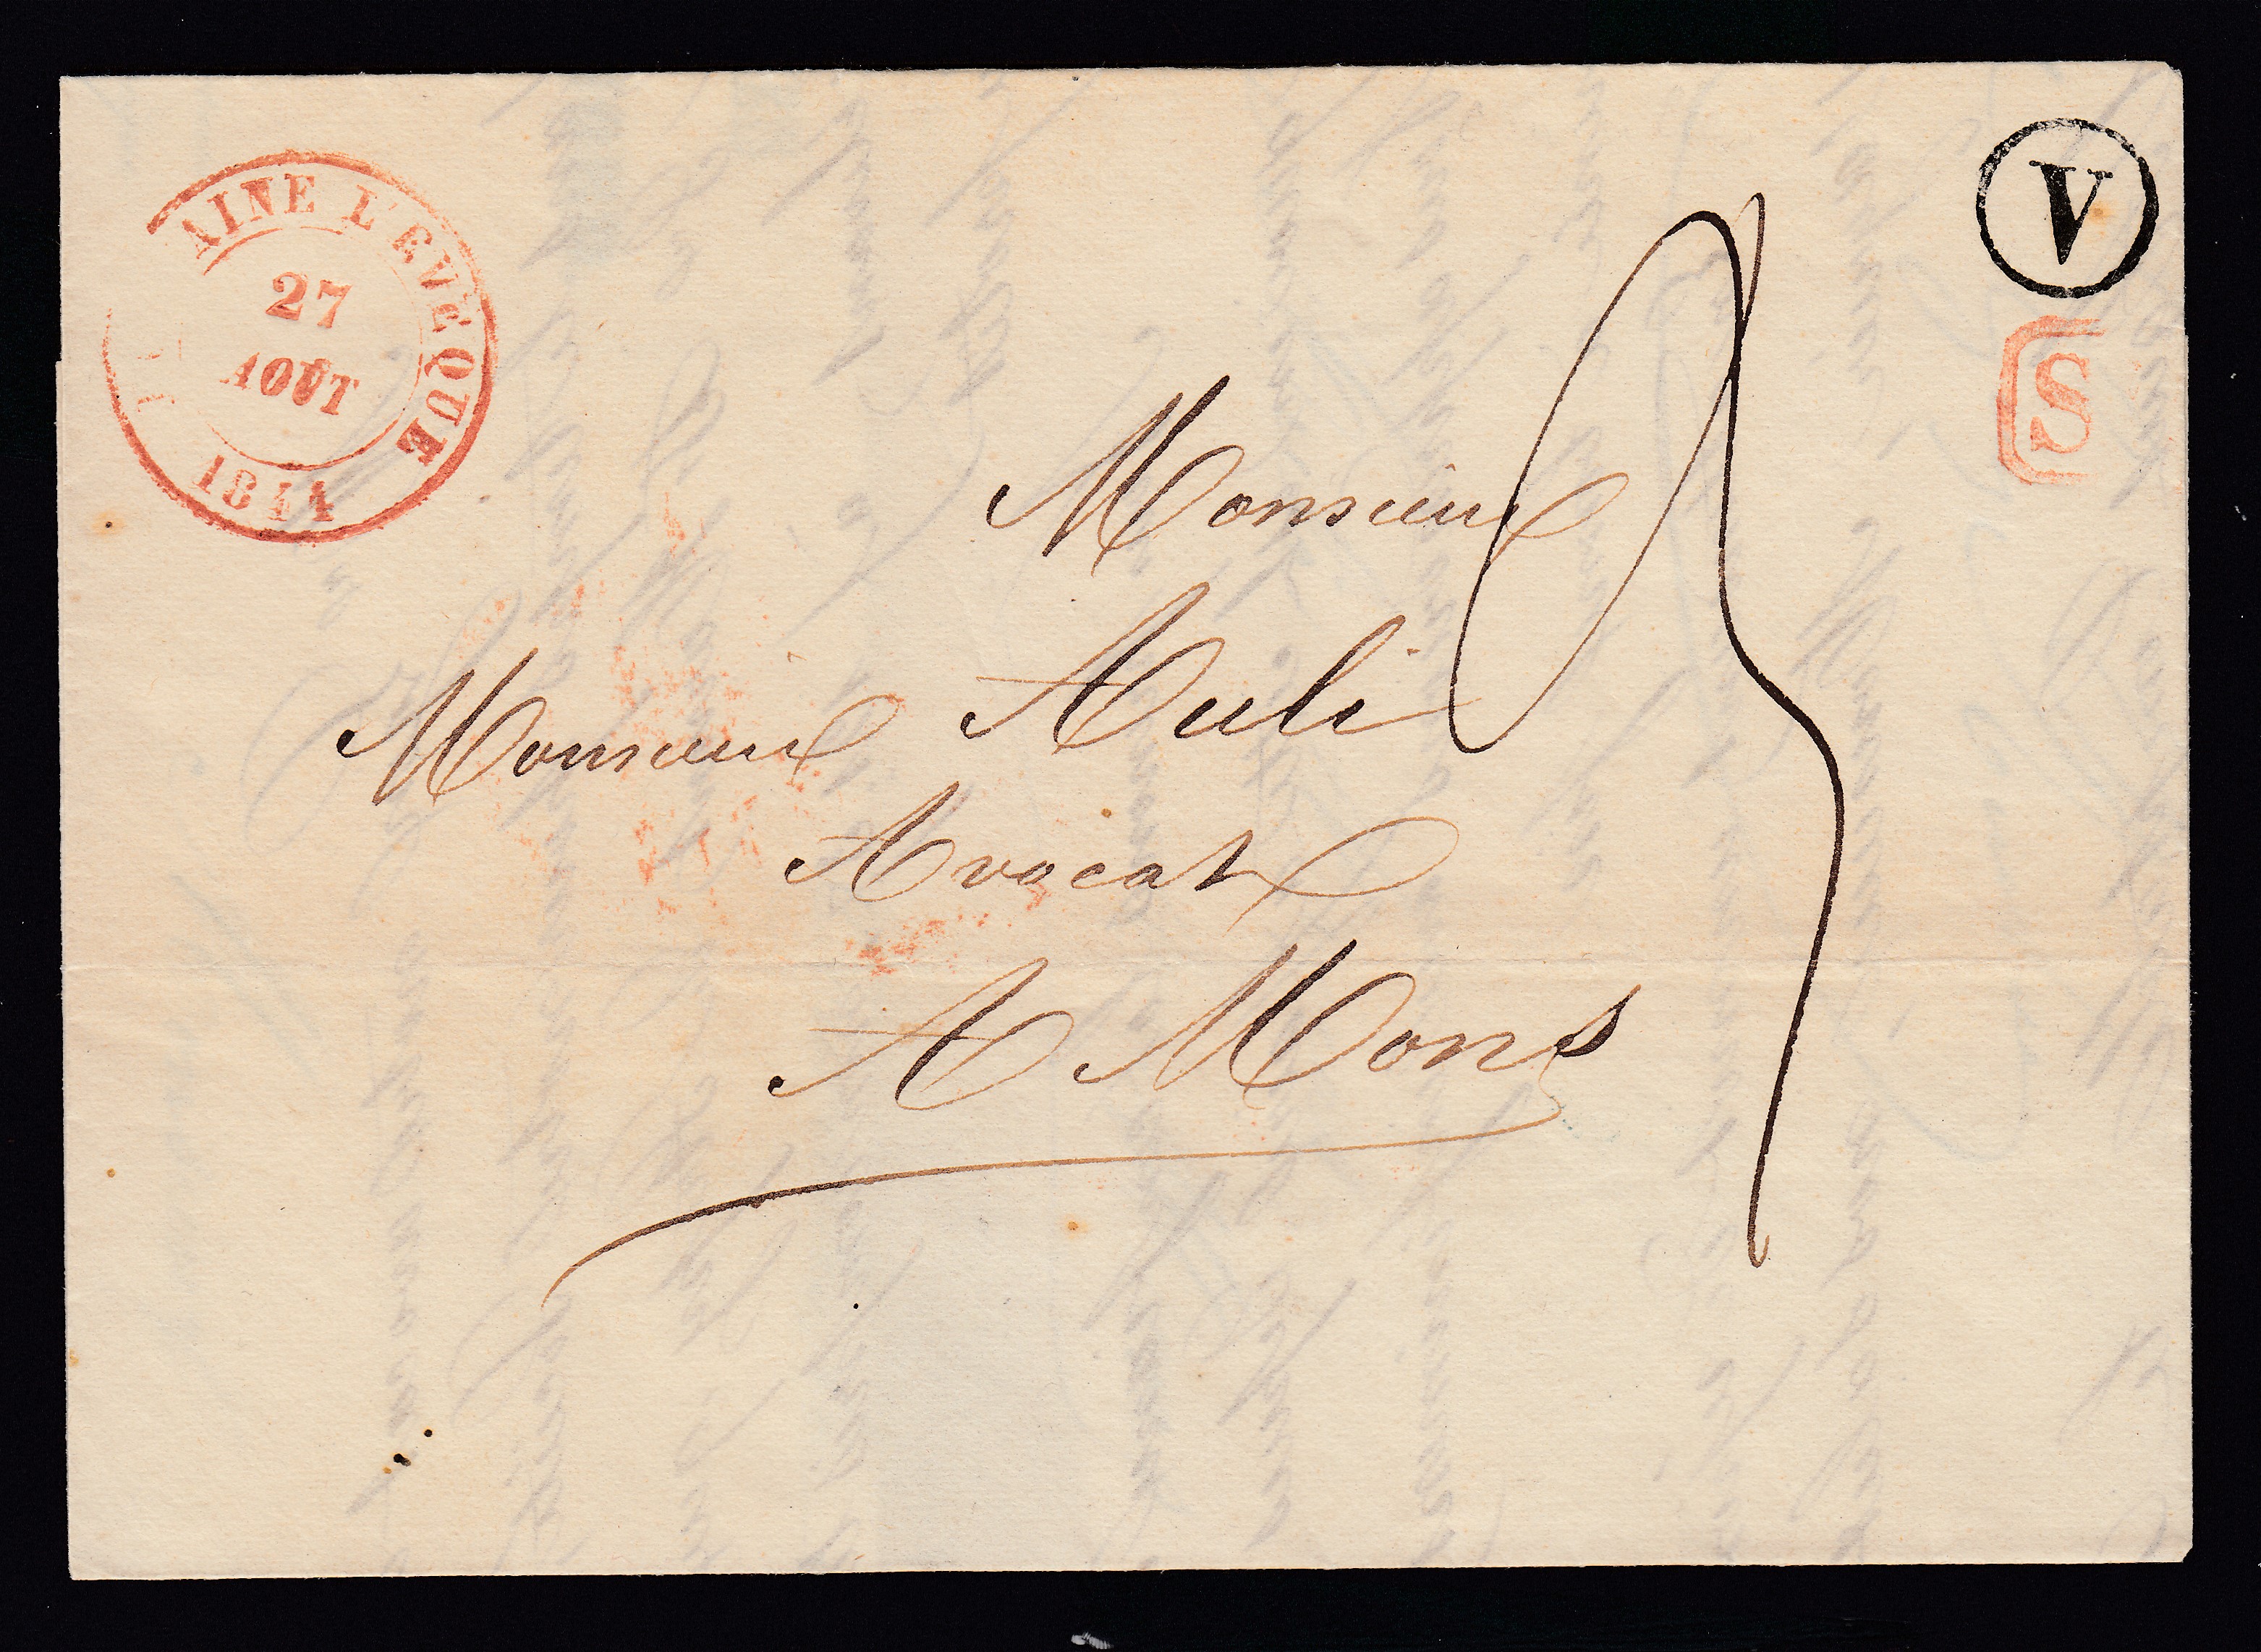 AINE L'EVÊQUE
27
AOUT
1844
V
S
Monsieur
Monsieur Auli
Avocat
A Mons